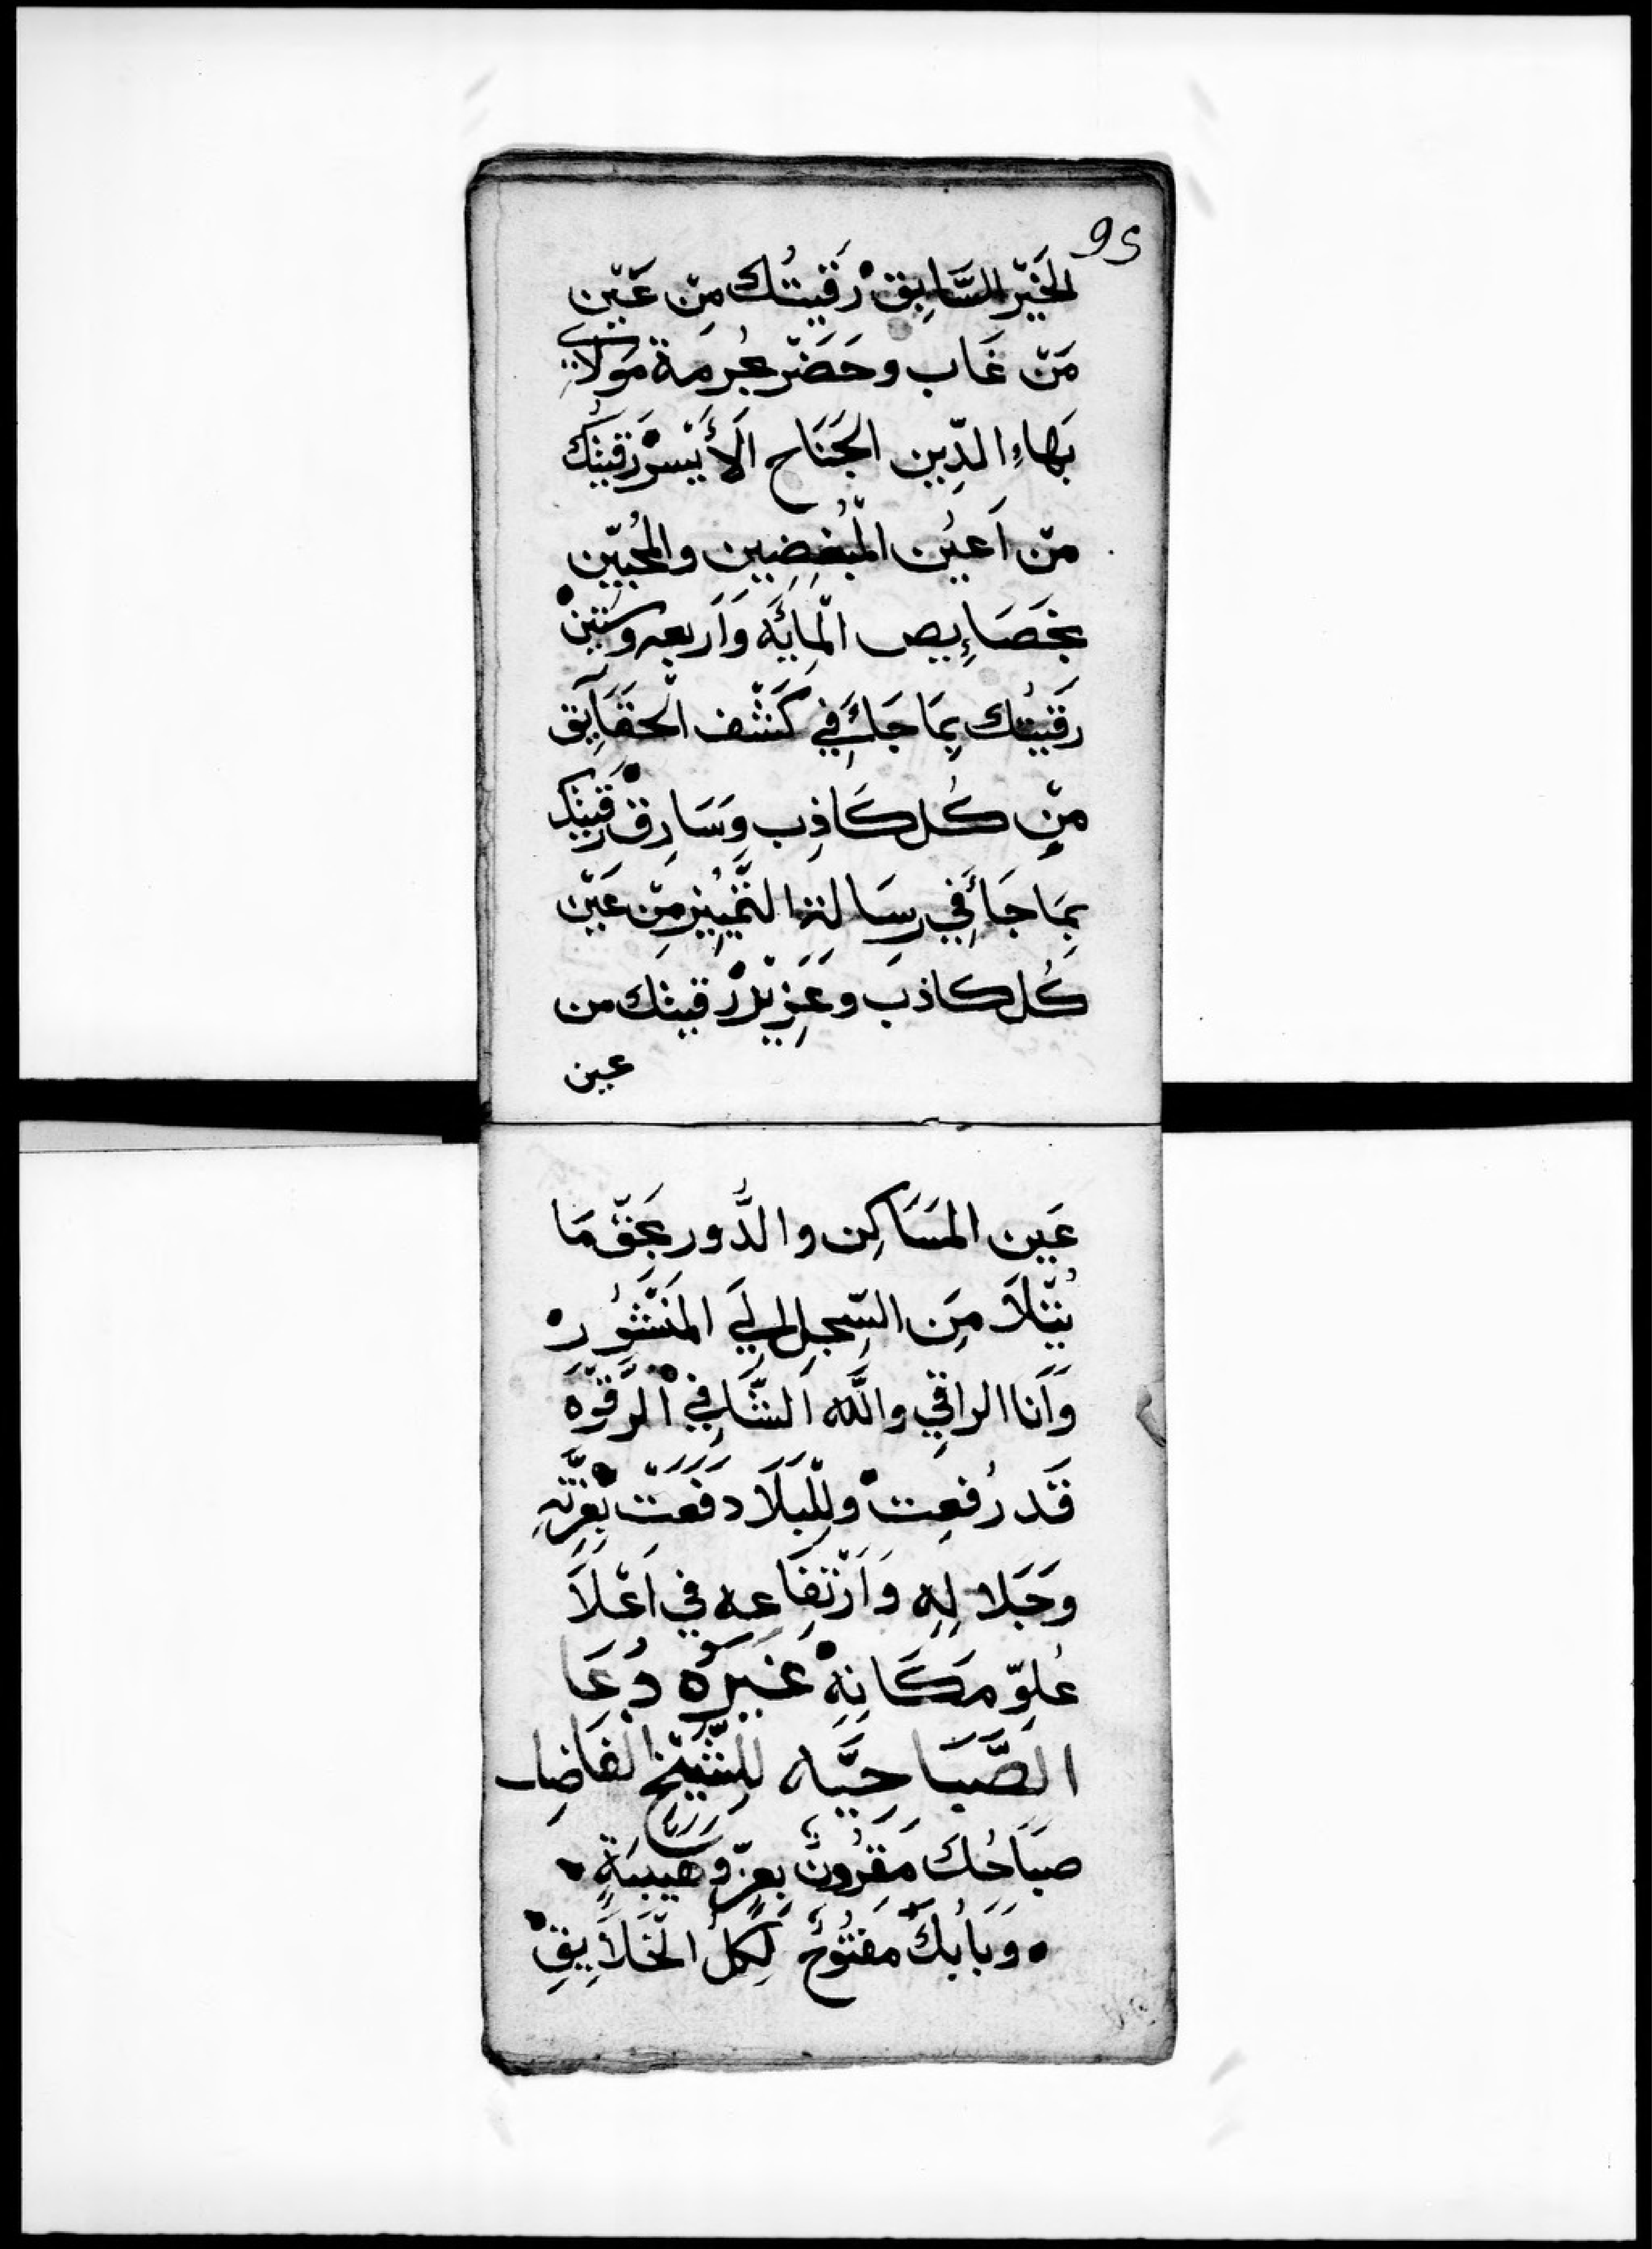 95
الخَيّر السَّابِقْ رَقَيتُك مِنّ عَيّن
مَنّ غَاب وحَضَرّ بحُرمَة مَولاي
بَهاءِ الدِّين الجَنَاح الأَيّسرْ رَقيتُكَ
منّ اَعيُن المُبّغِضِين والمُحبّين
بخَصَائِيص المّايَه وَاَربعه وسَتينْ
رَقَيتُك بِمَا جَاءَ فِي كَشّف الحقَآيِق
منّ كُل كَاذِب وسَارِقْ رَقَيتك
بِمَا جَاءَ فِي رِسَالة التَّمّيِيز مِنّ عَيّن
كُل كاذب وعَزِيْز رَقيتك من
عين
عَين المسَاكِن والدَّور بحَقّ مَا
يُتّلَا مِن السّجِل إلي المَنّشُور
وَاَنا الراقِي والله الشَّافِي الرَقّوَه
قَد رُفعِتْ ولِلّبَلَا دفَعَتّ بعِزّتهِ
وجَلالِهِ وَاَرْتِفَاعه في اَعْلَا
عُلوّ مَكَانِهْ غَيرَه دُعَا
الصَّبَاحِيَّه للشَّيّخ الفَاضِل
صبَاحُك مَقرُونٌ بِعزّ وهَيبَةٍ
وَبَابُكَ مَفتُوحٌ لِكلُ الخّلَايِقْ